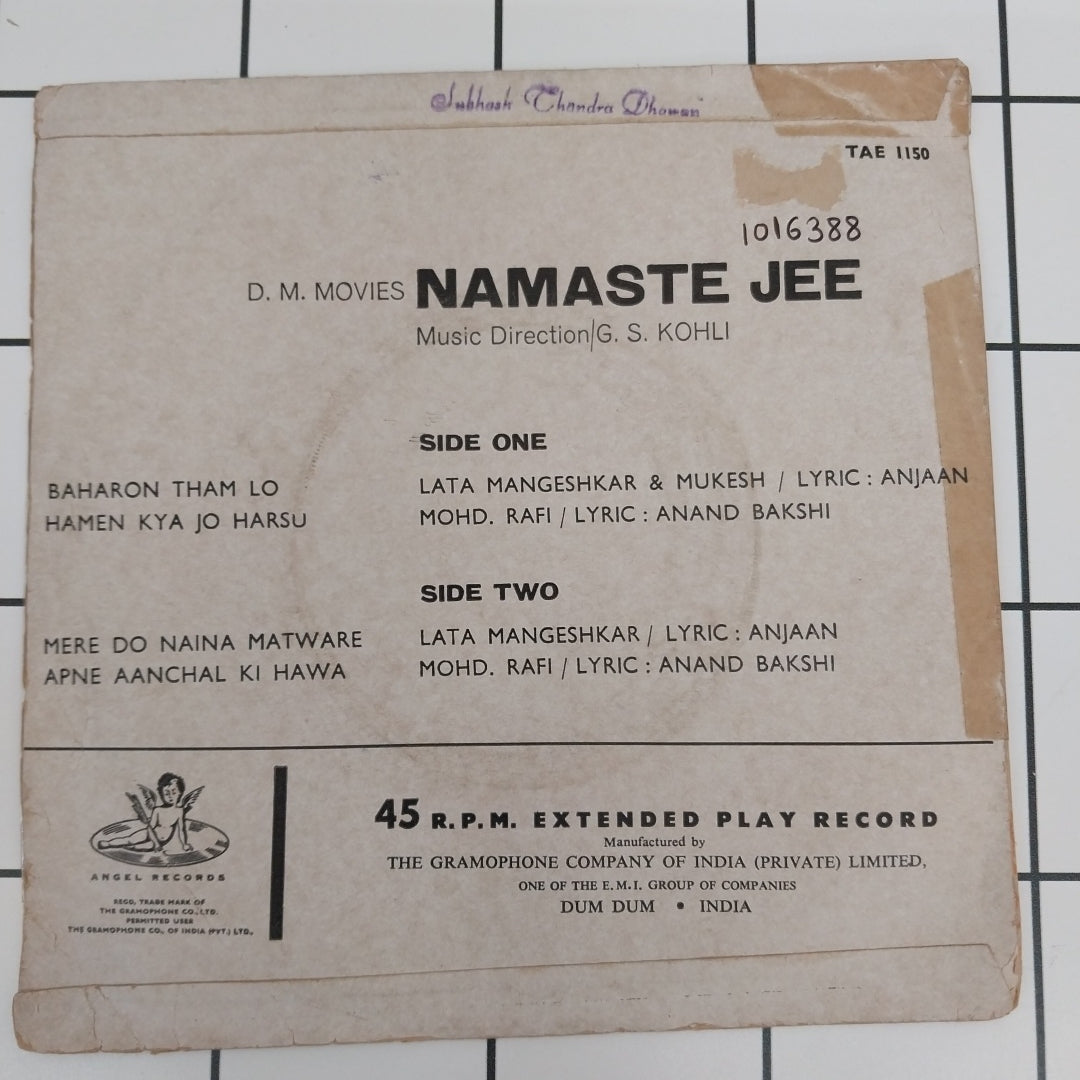 Subhash Chandra Dhawan
TAE 1150
1016388
D. M. MOVIES NAMASTE JEE
Music Direction/G. S. KOHLI
SIDE ONE
BAHARON THAM LO LATA MANGESHKAR & MUKESH / LYRIC : ANJAAN
HAMEN KYA JO HARSU MOHD. RAFI / LYRIC : ANAND BAKSHI
SIDE TWO
MERE DO NAINA MATWARE LATA MANGESHKAR / LYRIC : ANJAAN
APNE AANCHAL KI HAWA MOHD. RAFI / LYRIC : ANAND BAKSHI
ANGEL RECORDS
REGD. TRADE MARK OF
THE GRAMOPHONE CO., LTD.
PERMITTED USER
THE GRAMOPHONE CO., OF INDIA (PVT.) LTD.
45 R.P.M. EXTENDED PLAY RECORD
Manufactured by
THE GRAMOPHONE COMPANY OF INDIA (PRIVATE) LIMITED,
ONE OF THE E.M.I. GROUP OF COMPANIES
DUM DUM • INDIA